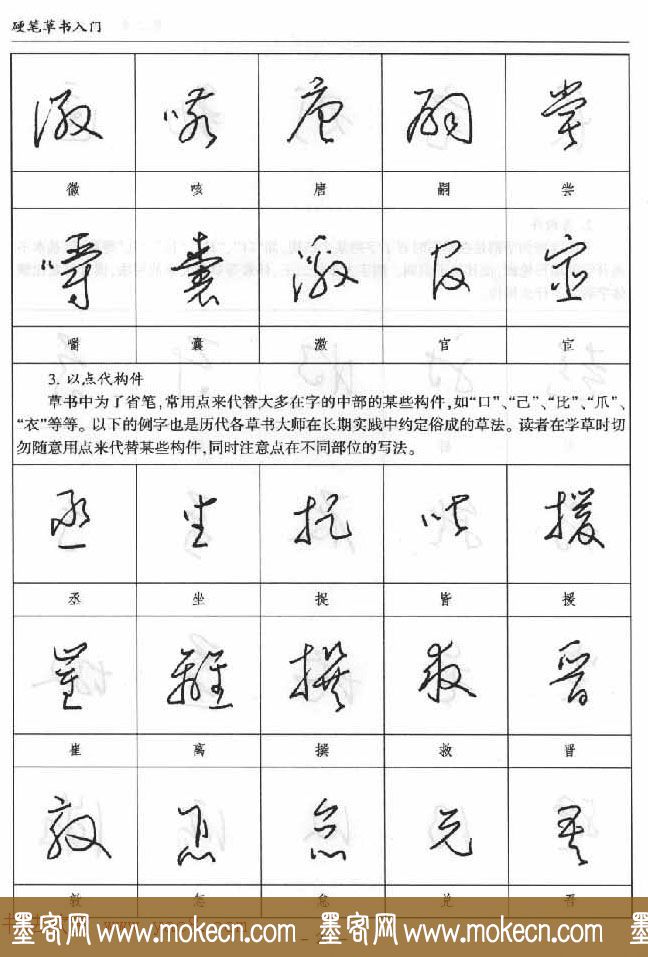 硬笔草书入门
徽 咳 唐 嗣 尝
嚼 囊 激 官 宦
3. 以点代构件
草书中为了省笔,常用点来代替大多在字的中部的某些构件,如“口”、“己”、“比”、“爪”、
“衣”等等。以下的例字也是历代各草书大师在长期实践中约定俗成的草法。读者在学草时切
勿随意用点来代替某些构件,同时注意点在不同部位的写法。
丞 坐 捉 皆 援
崔 离 撰 救 晋
敦 怎 怠 兑
墨客网 www.mokecn.com 墨客网 www.mokecn.com